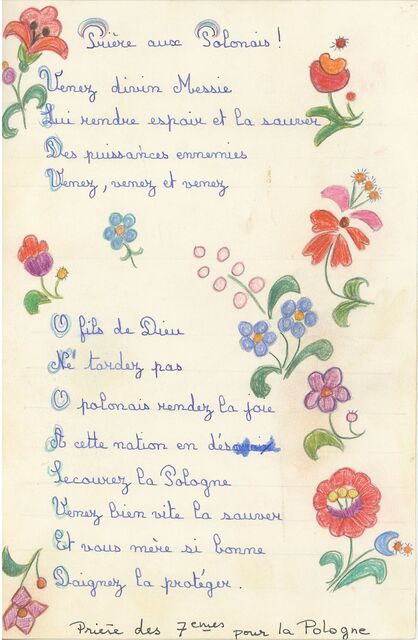 Prière aux Polonais !
Venez divin Messie
Lui rendre espoir et la sauver
Des puissances ennemies
Venez, venez et venez
O fils de Dieu
Ne tardez pas
O polonais rendez la joie
A cette nation en
Secourez la Pologne
Venez bien vite la sauver
Et vous mère si bonne
Daignez la protéger.
Prière des 7emes pour la Pologne